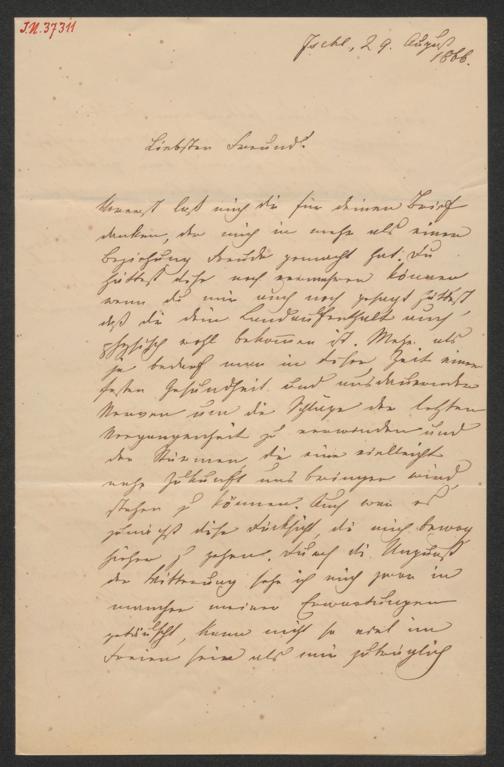 I.N. 37311
Ischl, 29. August
1866.
Liebster Freund!
Vorerst laß mich dir für deinen Brief
danken, der mich in mehr als einer
Beziehung Freude gemacht hat. Du
hättest diese noch vermehren können
wenn du mir auch noch gesagt hättest,
daß dir dein Landaufenthalt auch
physisch wohl bekommen ist. Mehr als
je bedarf man in dieser Zeit einer
festen Gesundheit und ausdauernder
Nerven um die Schläge der letzten
Vergangenheit zu verwinden und
den Stürmen, die eine vielleicht
nahe Zukunft uns bringen wird,
stehen zu können. Auch war es
zunächst diese Rücksicht, die mich bewog
hieher zu gehen. Durch die Ungunst
der Witterung sehe ich mich zwar in
mancher meiner Erwartungen
getäuscht, kann nicht so viel im
Freien sein als mir zuträglich